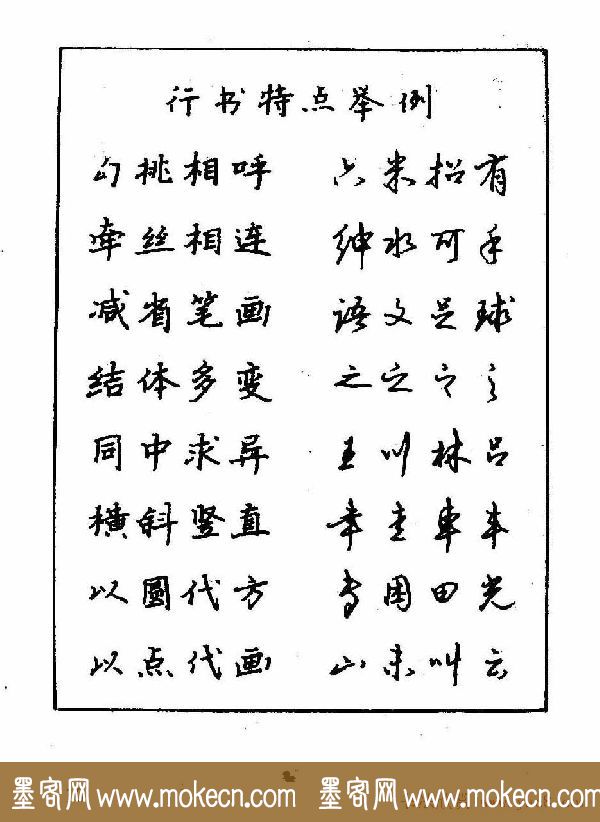 行书特点举例
勾挑相呼 六米招有
牵丝相连 绅水可手
减省笔画 语文足球
结体多变 之之之之
同中求异 王川林吕
横斜竖直 幸車车
以圆代方 田光
以点代画 山叫云
墨客网 www.mokecn.com 墨客网 www.mokecn.com